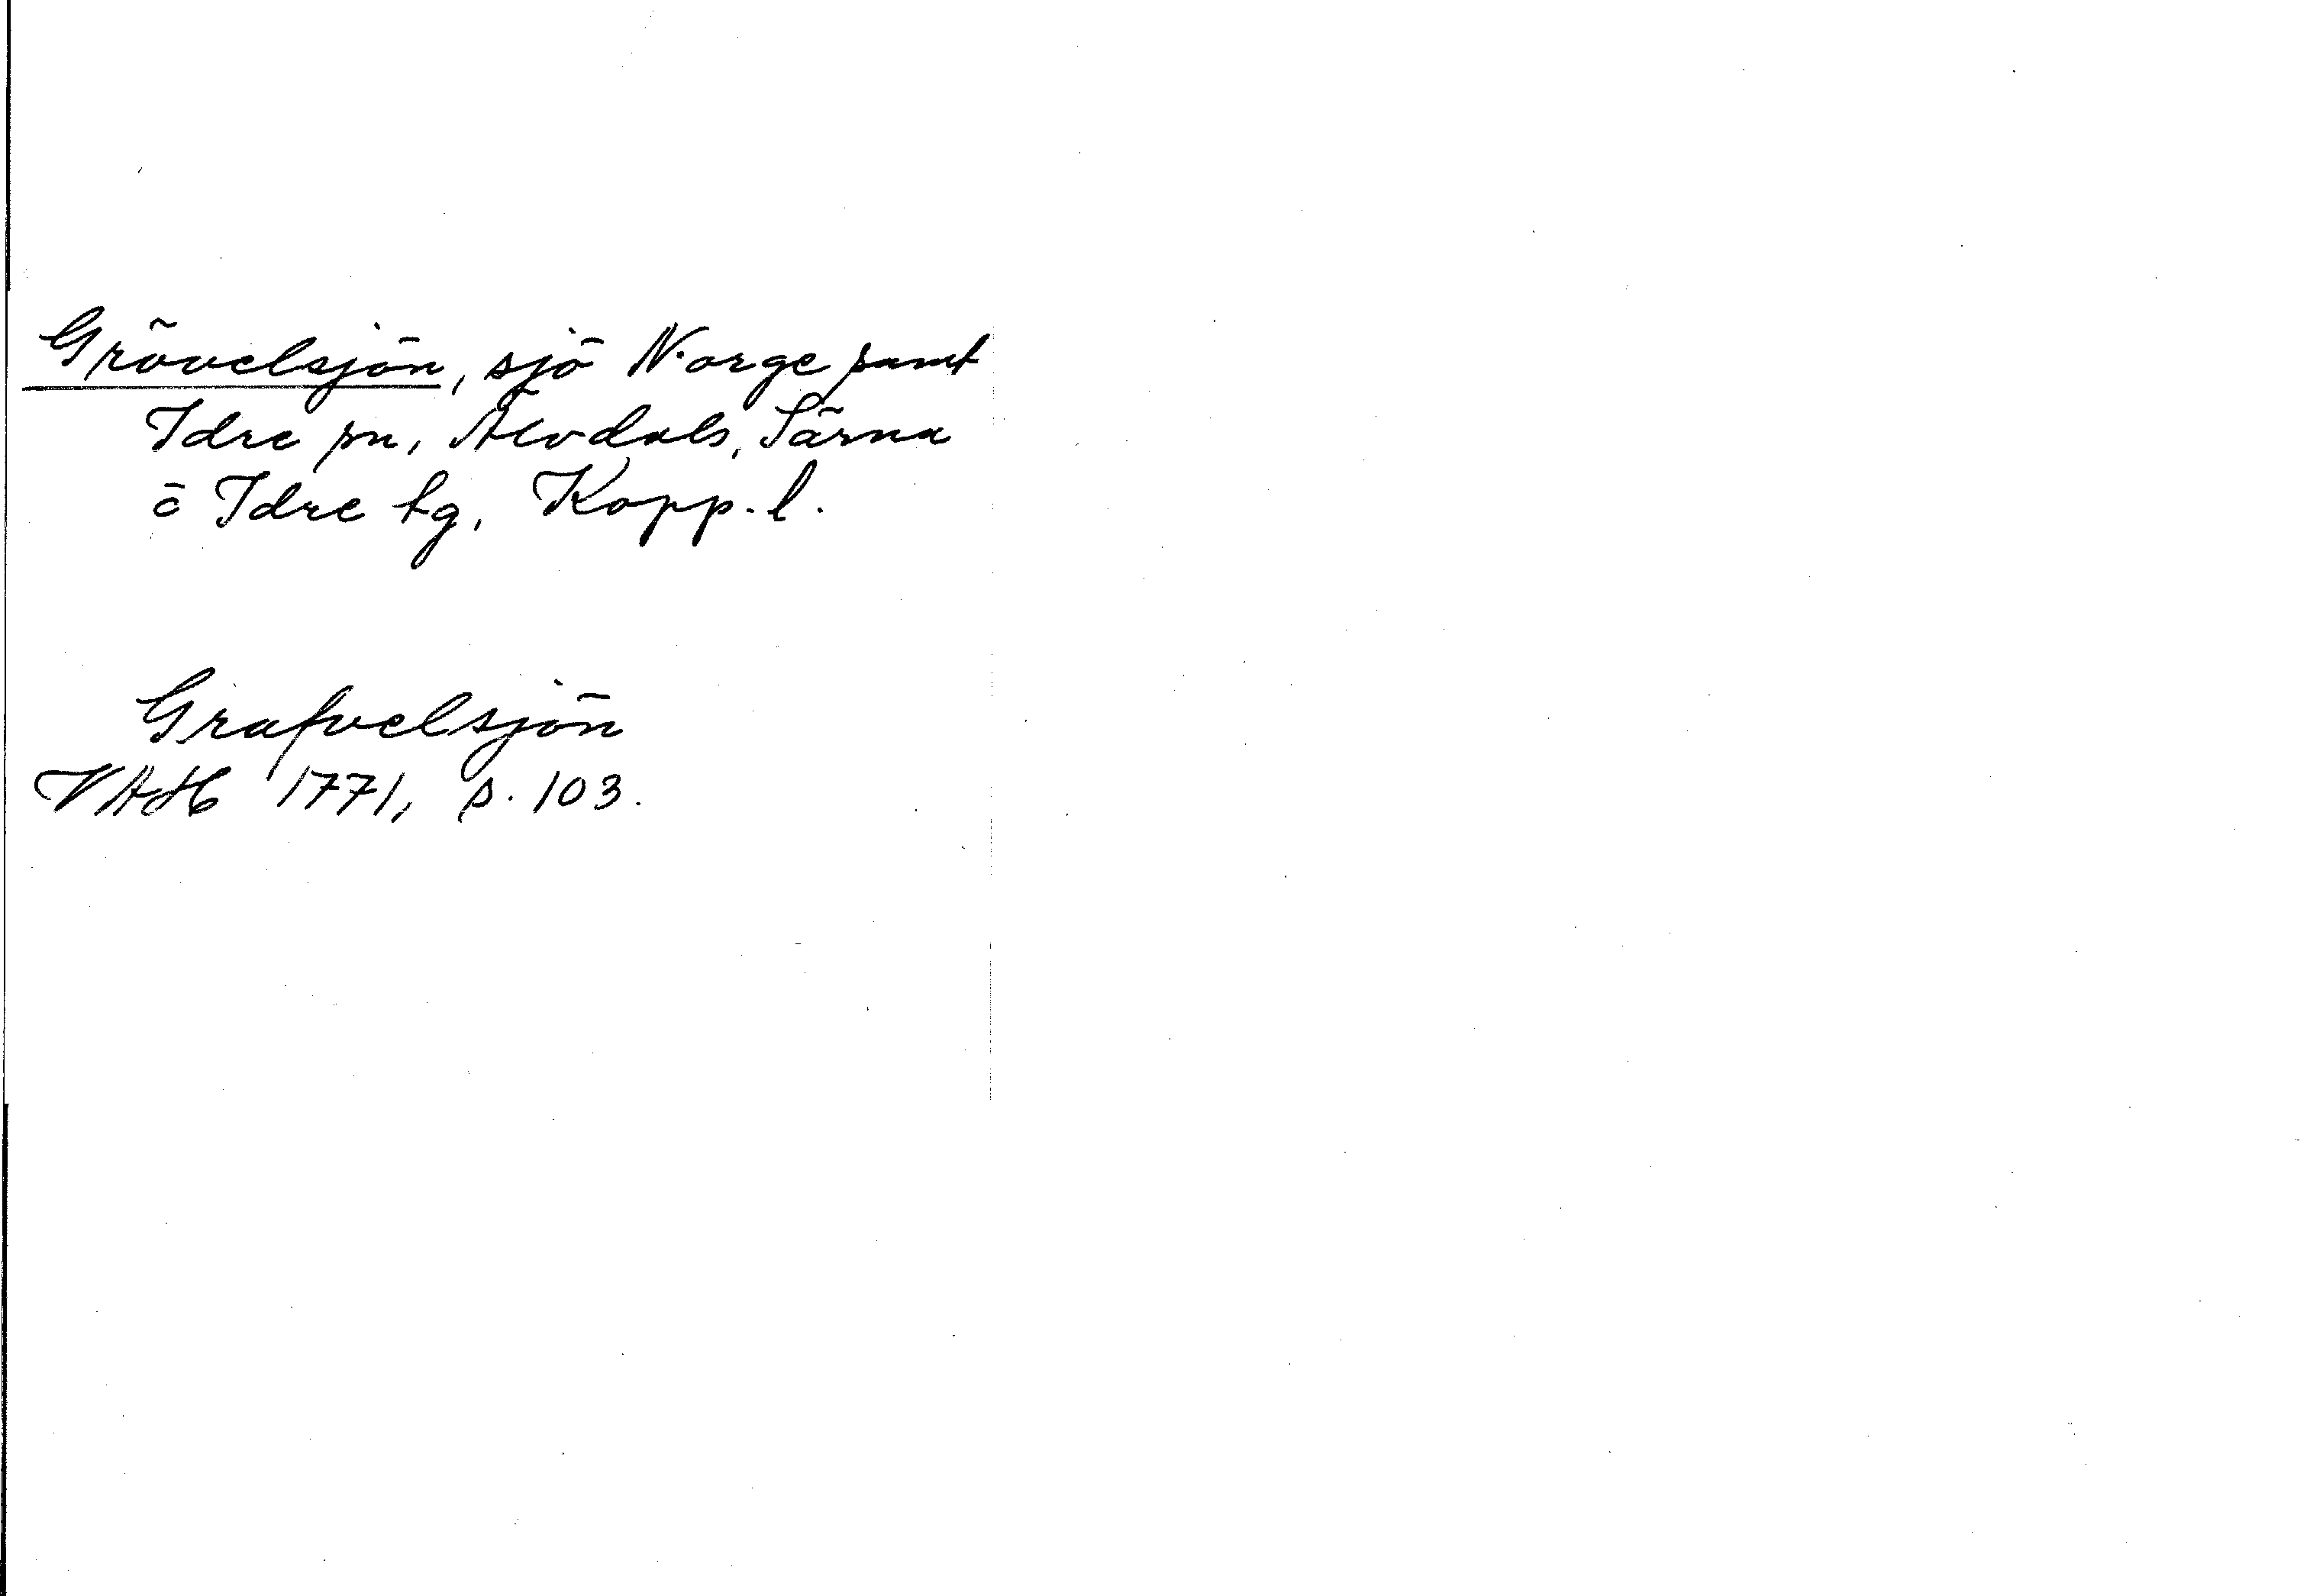 Grövelsjön, sjö Norge samt
Idre sn, Älvdals, Särna
o Idre tg, Kopp. l.
Grafvelsjön
VAH 1771, s. 103.